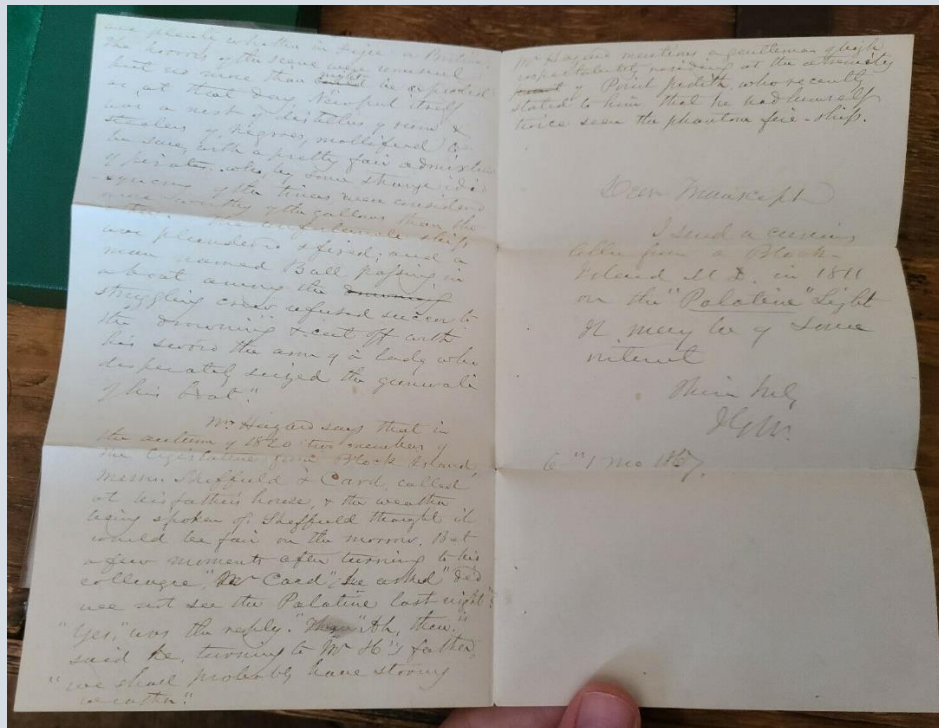 the horrors of the scene were unusual
but no more than might be expected
as, at that day, Newport itself
was a nest of distillers of rum &
stealers of negroes, mollified to
be sure, with a pretty fair admixture
of pirates, who, by some strange idio-
syncrasy of the times were considered
more worthy of the gallows than the
ships
were plundered & fired; and a
man named Ball passing in
a boat among the drowning
struggling crew refused succor to
the drowning & cut off with
his sword the arm of a lady who
desperately seized the gunwale
of his boat."
Mr Hazard says that in
the autumn of 1820 two members of
the Legislature from Block Island,
Messrs Sheffield & Card, called
at his father's house, & the weather
being spoken of, Sheffield thought it
would be fair on the morrow. But
a few moments after turning to his
colleague, "Mr Card", he asked "did
we not see the Palatine last night?"
"Yes," was the reply. "Ah, then,"
said he, turning to Mr H's father,
"we shall probably have stormy
weather."
Mr Hazard mentions a gentleman of high
respectability residing at the extremity
of Point Judith, who recently
stated to him that he had himself
twice seen the phantom fire-ship.
Dear
I send a curious
letter from a Block-
Island M.D. in 1811
on the "Palatine" Light
It may be of some
interest
Thine truly
J.G.W.
6" 1 mo